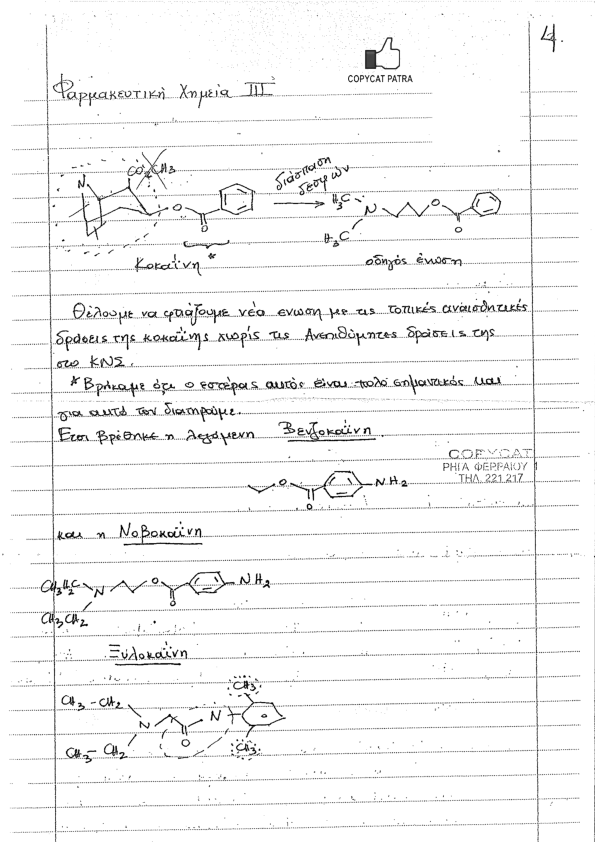 4.
COPYCAT PATRA
Φαρμακευτική Χημεία III
CO₂CH₃
N
O
O
διάσπαση
δεσμών
H₃C
N
O
O
H₃C
Κοκαΐνη *
οδηγός ένωση
Θέλουμε να φτιάξουμε νέα ενωση με τις τοπικές αναισθητικές
δράσεις της κοκαΐνης χωρίς τις Ανεπιθύμητες δράσεις της
στο ΚΝΣ.
* Βρήκαμε ότι ο εστέρας αυτός είναι πολύ σημαντικός και
για αυτό τον διατηρούμε.
Έτσι βρέθηκε η λεγόμενη Βενζοκαΐνη.
COPYCAT
ΡΗΓΑ ΦΕΡΡΑΙΟΥ 1
ΤΗΛ. 221.217
O
NH₂
O
και η Νοβοκαΐνη
CH₃H₂C
N
O
NH₂
O
CH₃CH₂
Ξυλοκαΐνη
CH₃-CH₂
CH₃
N
N
O
CH₃-CH₂
CH₃